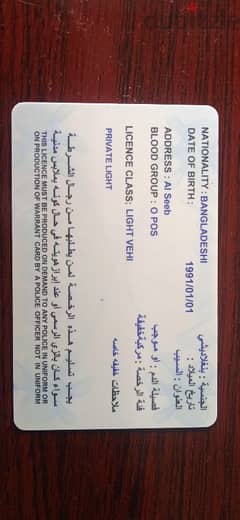 NATIONALITY : BANGLADESHI
الجنسية : بنغلاديشي
DATE OF BIRTH :
1991/01/01
تاريخ الميلاد :
ADDRESS : Al Seeb
العنوان : السيب
BLOOD GROUP : O POS
فصيلة الدم : او موجب
LICENCE CLASS: LIGHT VEHI
فئة الرخصة : مركبة خفيفة
PRIVATE LIGHT
ملاحظات خفيفه خاصه
يجب تسليم هذه الرخصة لمن يطلبها من رجال الشرطة
سواء كان بالزي الرسمي أو عند إبراز هويته في حال كونه بملابس مدنية
THIS LICENCE MUST BE PRODUCED ON DEMAND TO ANY POLICE IN UNIFORM OR
ON PRODUCTION OF WARRANT CARD BY A POLICE OFFICER NOT IN UNIFORM